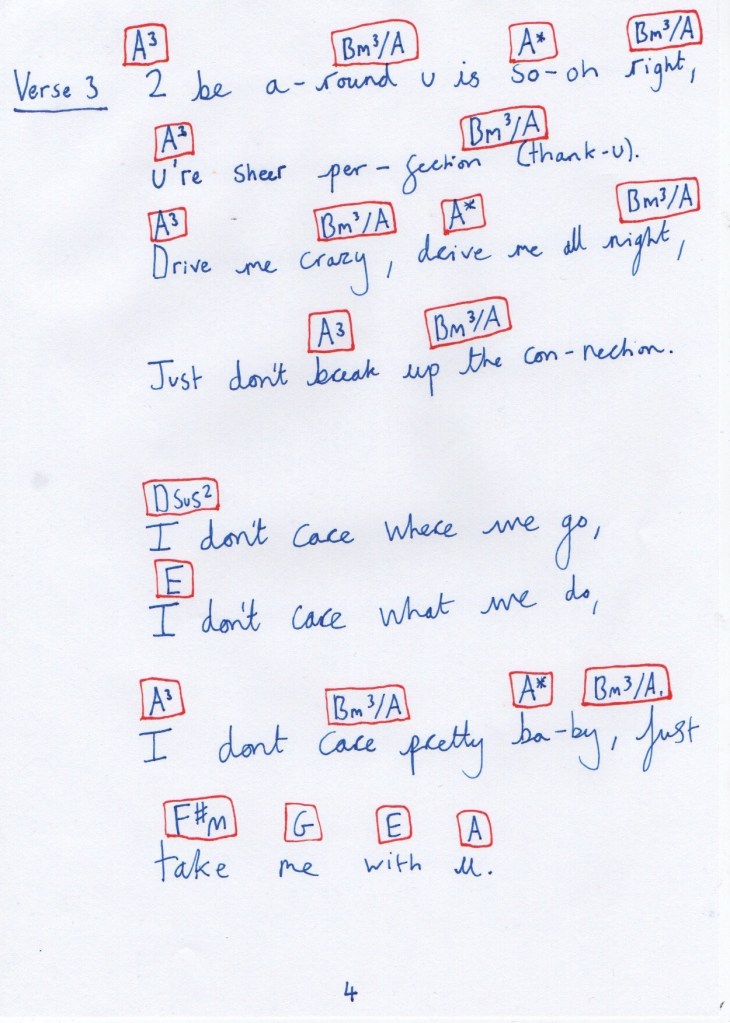 A³ Bm³/A A* Bm³/A
Verse 3 2 be a-round u is so-oh right,
A³ Bm³/A
u're sheer per-fection (thank-u).
A³ Bm³/A A* Bm³/A
Drive me crazy, drive me all night,
A³ Bm³/A
Just don't break up the con-nection.
Dsus²
I don't care where we go,
E
I don't care what we do,
A³ Bm³/A A* Bm³/A.
I dont care pretty ba-by, just
F#m G E A
take me with u.
4